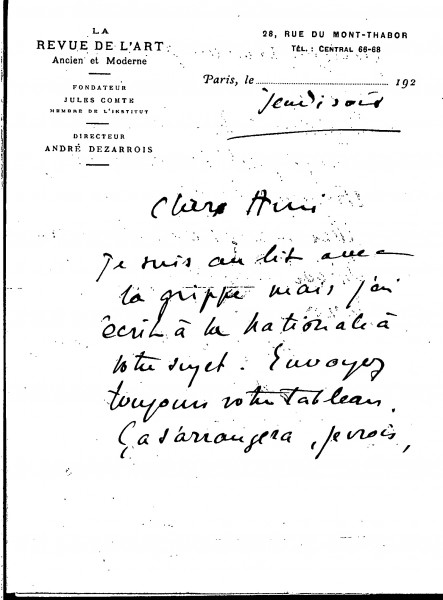 LA
REVUE DE L'ART
Ancien et Moderne
FONDATEUR
JULES COMTE
MEMBRE DE L'INSTITUT
DIRECTEUR
ANDRÉ DEZARROIS
28, RUE DU MONT-THABOR
TÉL. : CENTRAL 68-68
Paris, le 192
Jeudi soir
Cher Ami
Je suis au lit avec
la grippe mais j'ai
écrit à la Nationale à
votre sujet. Envoyez
toujours votre tableau.
Ça s'arrangera, je crois,